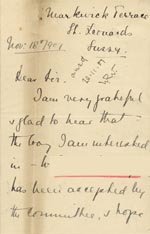 Markwick Terrace
St. Leonards
Sussex
Nov: 18th 1901
Dear Sir.
I am very grateful
& glad to hear that
the boy I am interested
in
has been accepted by
the committee, & hope